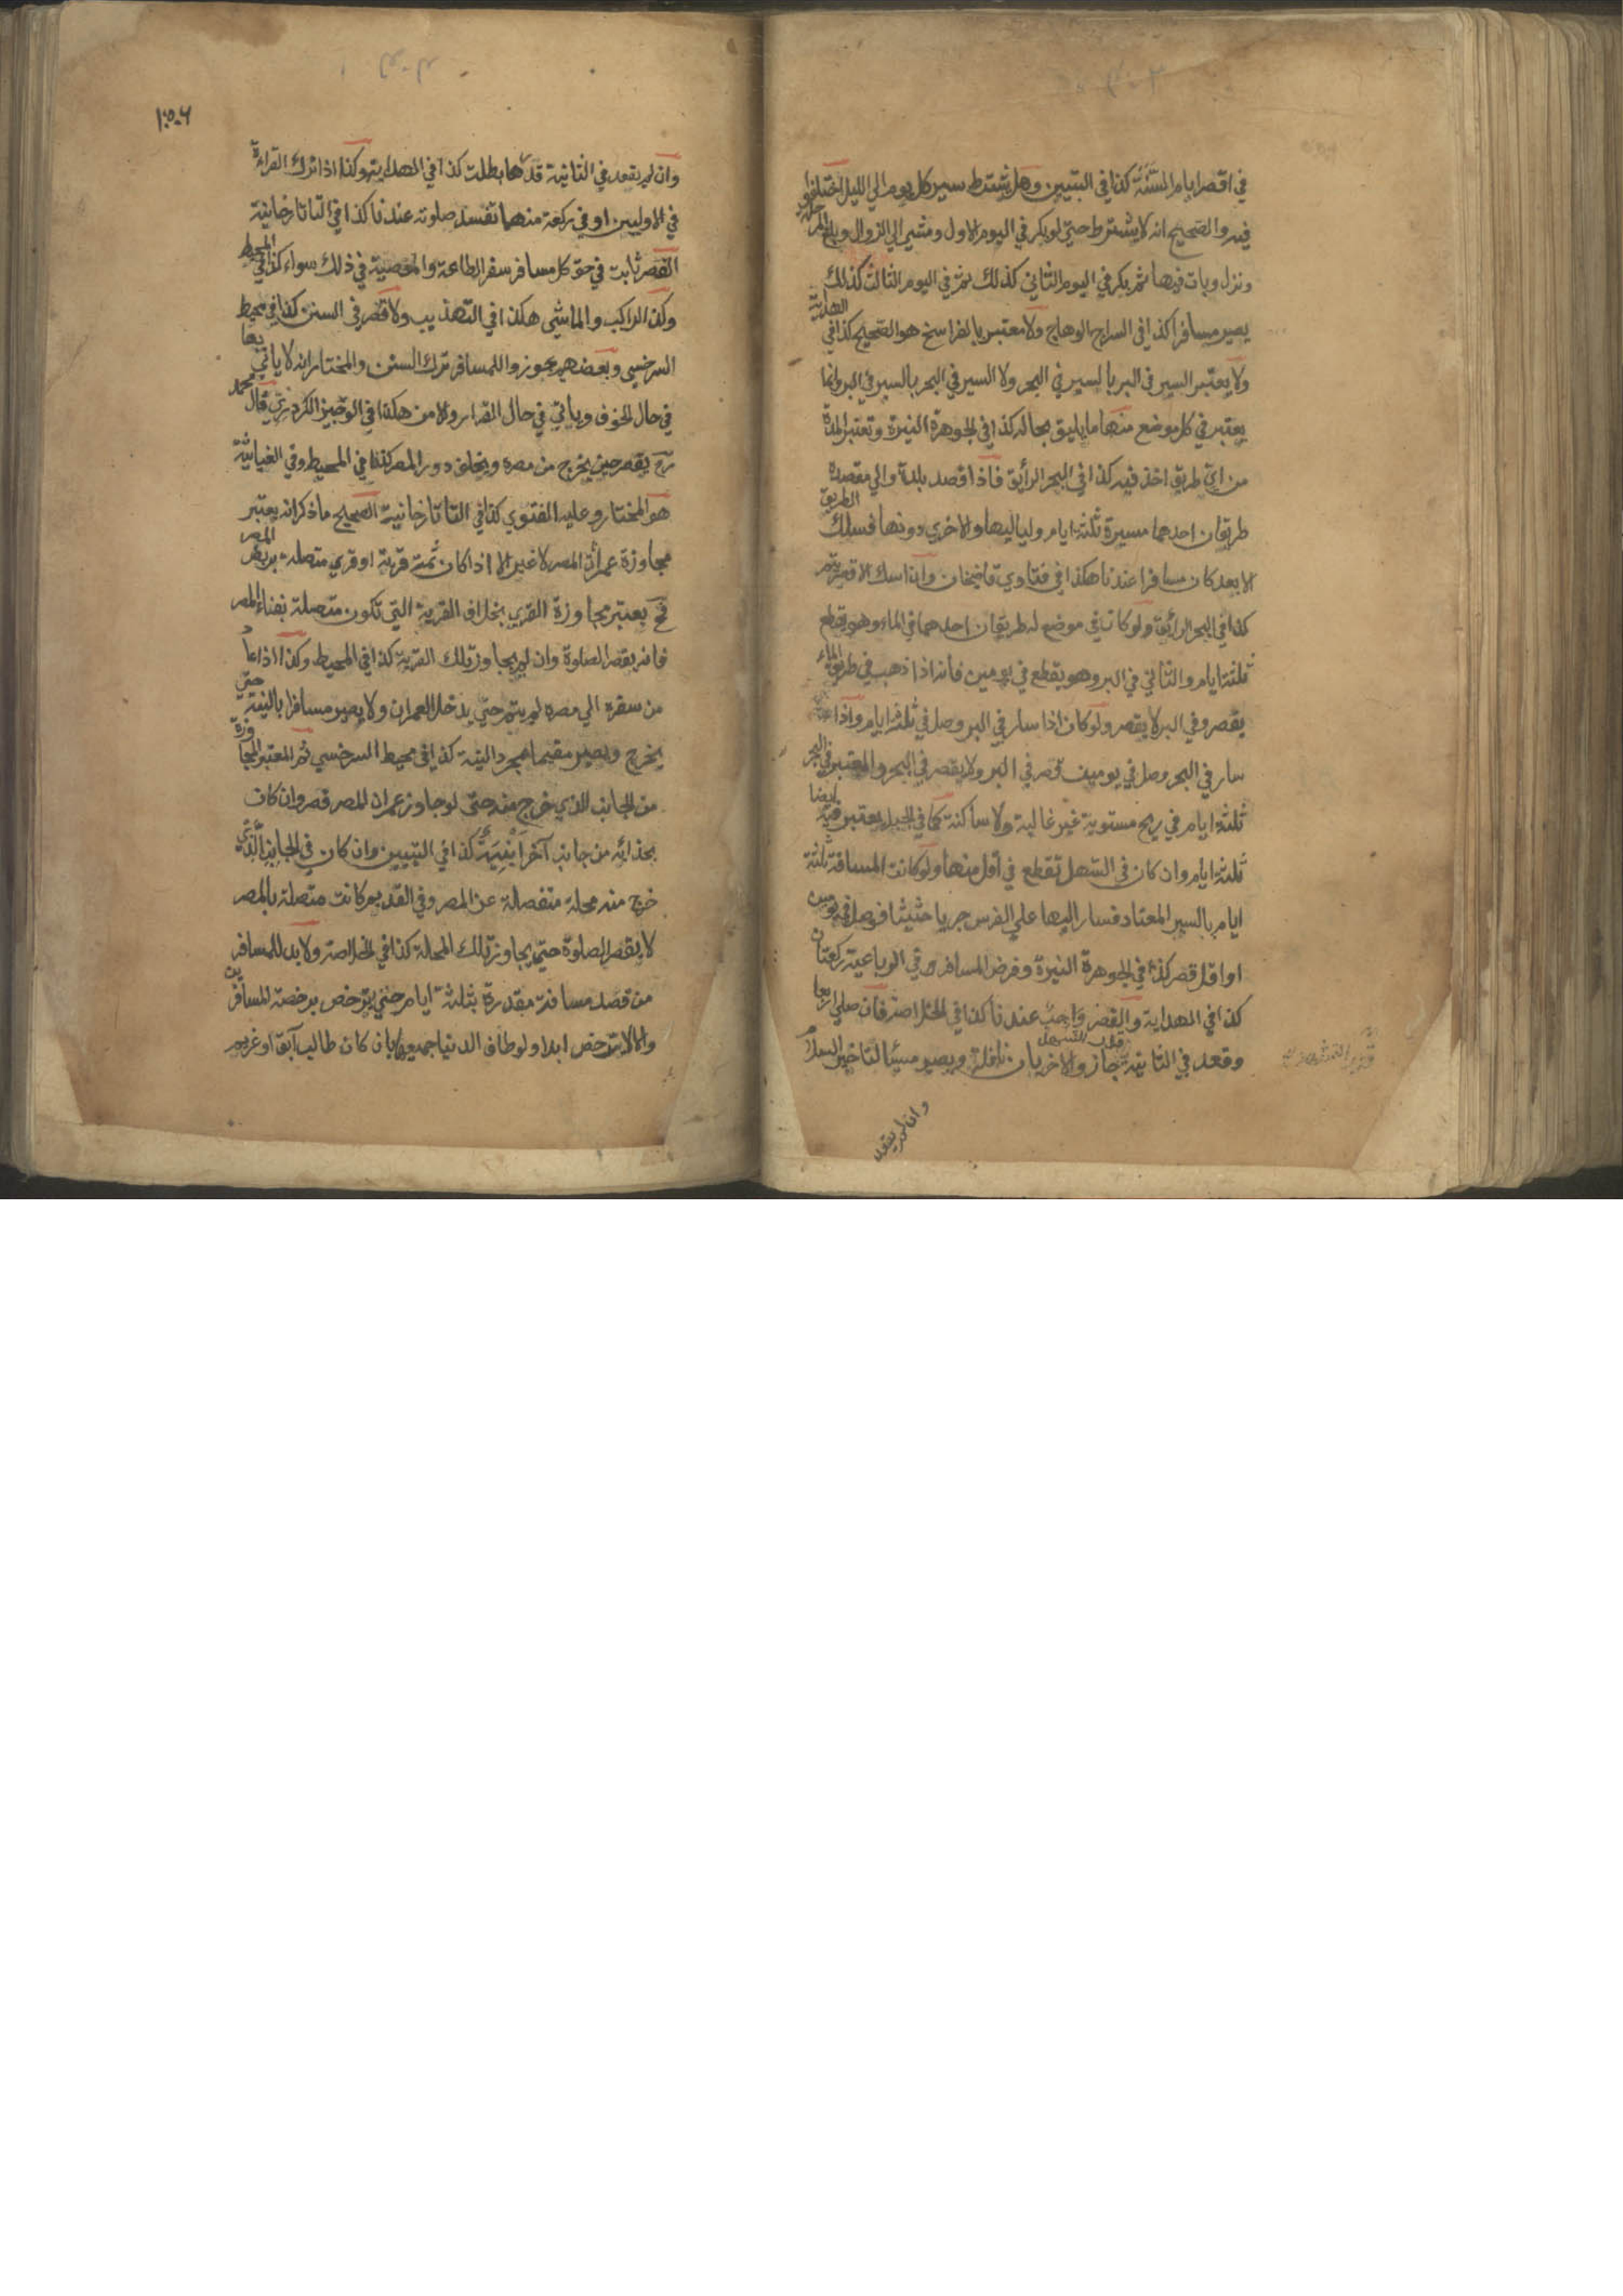 في اقصر ايام السنة كذا في التبيين وهل يشترط سير كل يوم الي الليل اختلفوا
فيه والصحيح انه لا يشترط حتي لو بكر في اليوم الاول ومشي الي الزوال وبلغ المرحلة
ونزل وبات فيها ثم بكر في اليوم الثاني كذلك ثم في اليوم الثالث كذلك
يصير مسافرا كذا في السراج الوهاج ولا معتبر بالفراسخ هو الصحيح كذا في الهداية
ولا يعتبر السير في البر بالسير في البحر ولا السير في البحر بالسير في البر وانما
يعتبر في كل موضع منهما ما يليق بحاله كذا في الجوهرة النيرة وتعتبر المدة
من اي طريق اخذ فيه كذا في البحر الرائق فاذا قصد بلدة والي مقصده
طريقان احدهما مسيرة ثلثة ايام ولياليها والاخري دونها فسلك الطريق
الابعد كان مسافرا عندنا هكذا في فتاوي قاضيخان وان اسلك الاقصر يتم
كذا في البحر الرائق ولو كانت في موضع له طريقان احدهما في الماء وهو يقطع
ثلثة ايام والثاني في البر وهو يقطع في يومين فانه اذا ذهب في طريق الماء
يقصر وفي البر لا يقصر ولو كان اذا سار في البر وصل في ثلثة ايام واذا
سار في البحر وصل في يومين قصر في البر ولا يقصر في البحر والمعتبر في البحر
ثلثة ايام في ريح مستوية غير غالية ولا ساكنة كما في الجبل يعتبر فيه ايضا
ثلثة ايام وان كان في السهل تقطع في اقل منها ولو كانت المسافة ثلثة
ايام بالسير المعتاد فسار اليها علي الفرس جريا حثيثا فوصل في يومين
او اقل قصر كذا في الجوهرة النيرة وفرض المسافر في الرباعية ركعتان
كذا في الهداية والقصر واجب عندنا كذا في الخلاصة فان صلي اربعا
وقعد في الثانية قدر التشهد جاز والاخريان نافلة ويصير مسيئا لتاخير السلام
قدر التشهد
وان لم يقعد
١٥٠٦
وان لم يقعد في الثانية قدرها بطلت كذا في الهداية وكذا اذا ترك القراءة
في الاوليين او في ركعة منهما تفسد صلوته عندنا كذا في التاتارخانية
القصر ثابت في حق كل مسافر سفر الطاعة والمعصية في ذلك سواء كذا في المحيط
وكذا الراكب والماشي هكذا في التهذيب ولا قصر في السنن كذا في محيط
السرخسي وبعضهم يجوزوا للمسافر ترك السنن والمختار انه لا ياتي بها
في حال الخوف وياتي في حال القرار والامن هكذا في الوجيز الكردري قال محمد
رح يقصر حين يخرج من مصره ويخلف دور المصر كذا في المحيط وفي الغياثية
هو المختار وعليه الفتوي كذا في التاتارخانية الصحيح ما ذكر انه يعتبر
مجاوزة عمران المصر لا غير الا اذا كان ثمة قرية او قري متصلة بربض المصر
فح يعتبر مجاوزة القري بخلاف القرية التي تكون متصلة بفناء المصر
فانه يقصر الصلوة وان لم يجاوز تلك القرية كذا في المحيط وكذا اذا عاد
من سفره الي مصره لم يتم حتي يدخل العمران ولا يصير مسافرا بالنية حتي
يخرج ويصير مقيما بمجرد النية كذا في محيط السرخسي ثم المعتبر المجاوزة
من الجانب الذي خرج منه حتي لو جاوز عمران المصر قصر وان كان
بحذائه من جانب آخر ابنية كذا في التبيين وان كان في الجانب الذي
خرج منه محلة منفصلة عن المصر وفي القديم كانت متصلة بالمصر
لا يقصر الصلوة حتي يجاوز تلك المحلة كذا في الخلاصة ولا بد للمسافر
من قصد مسافة مقدرة بثلثة ايام حتي يترخص برخصة المسافرين
والا لا يترخص ابدا ولو طاف الدنيا جميعها بان كان طالب آبق او غريم